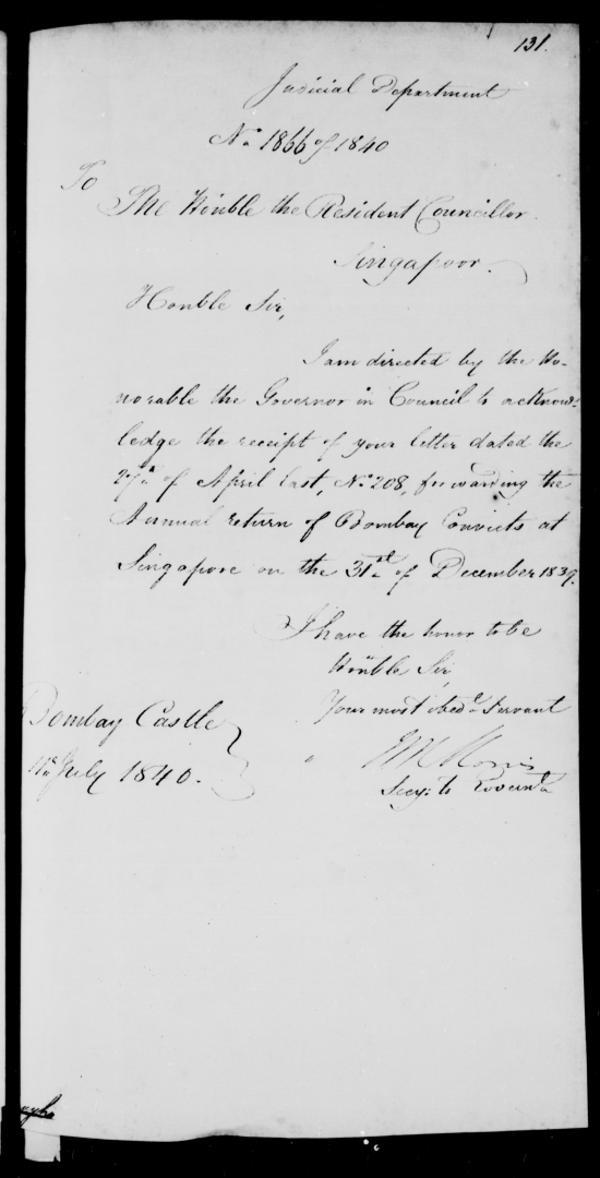 131.
Judicial Department
No. 1866 of 1840
To
The Honble the Resident Councillor
Singapoor.
Honble Sir,
I am directed by the Ho-
norable the Governor in Council to acknow-
ledge the receipt of your letter dated the
27th of April last, No. 208, forwarding the
Annual return of Bombay Convicts at
Singapore on the 31st of December 1839.
I have the honor to be
Honble Sir,
Your most obedt. Servant
Morris
Secy: to Governt
Bombay Castle
July 1840.